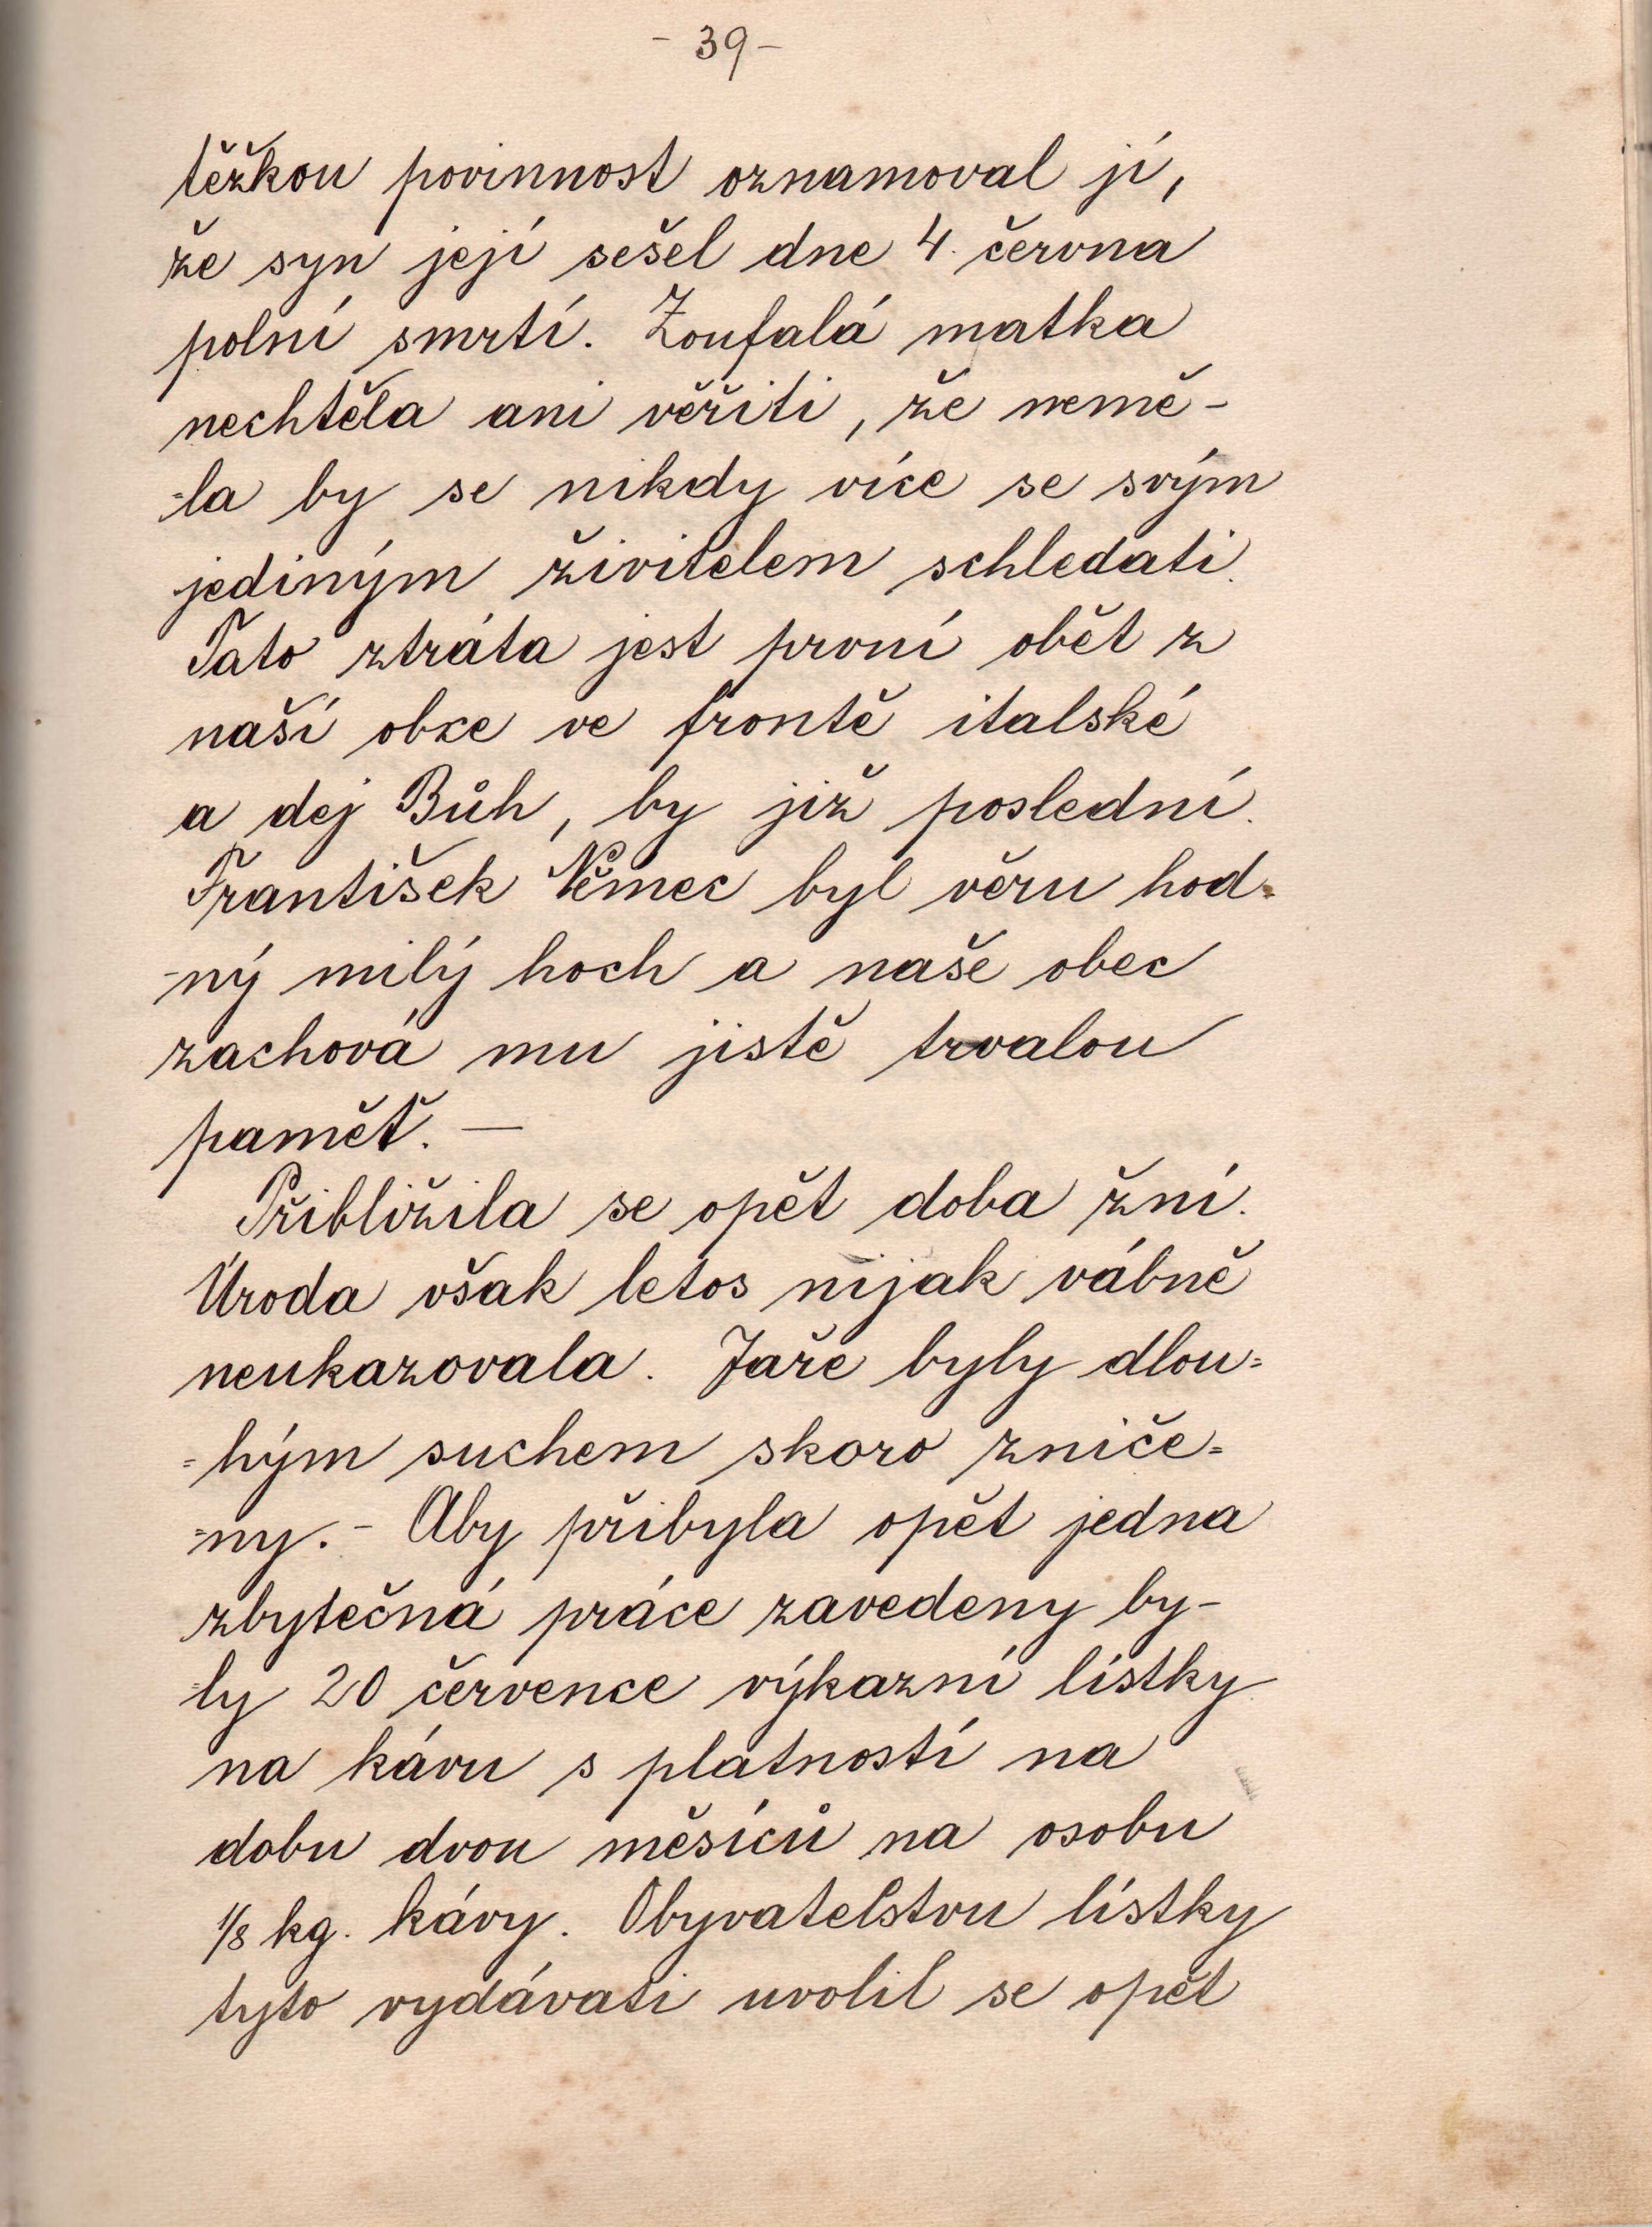 - 39 -
těžkou povinnost oznamoval jí,
že syn její sešel dne 4. června
polní smrtí. Zoufalá matka
nechtěla ani věřiti, že nemě-
-la by se nikdy více se svým
jediným živitelem schledati.
Tato ztráta jest první obět z
naší obce ve frontě italské
a dej Bůh, by již poslední.
František Němec byl věru hod-
-ný milý hoch a naše obec
zachová mu jistě trvalou
paměť. —
Přibližila se opět doba žní.
Úroda však letos nijak vábně
neukazovala. Jaře byly dlou=
=hým suchem skoro zniče=
=ny. - Aby přibyla opět jedna
zbytečná práce zavedeny by-
-ly 20 července výkazní lístky
na kávu s platností na
dobu dvou měsíců na osobu
1/8 kg. kávy. Obyvatelstvu lístky
tyto vydávati uvolil se opět